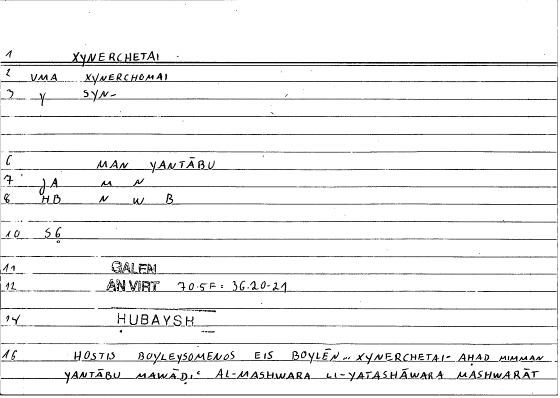 1 XYNERCHETAI
2 VMA XYNERCHOMAI
3 y SYN-
6 MAN YANTĀBU
7 JA M N
8 HB N W B
10 S6
11 GALEN
12 AN VIRT 705F: 36.20-21
14 ḤUBAYSH
16 HOSTIS BOYLEYSOMENOS EIS BOYLĒN... XYNERCHETAI- AḤAD MIMMAN
YANTĀBU MAWĀḌIʿ AL-MASHWARA LI-YATASHĀWARA MASHWARĀT